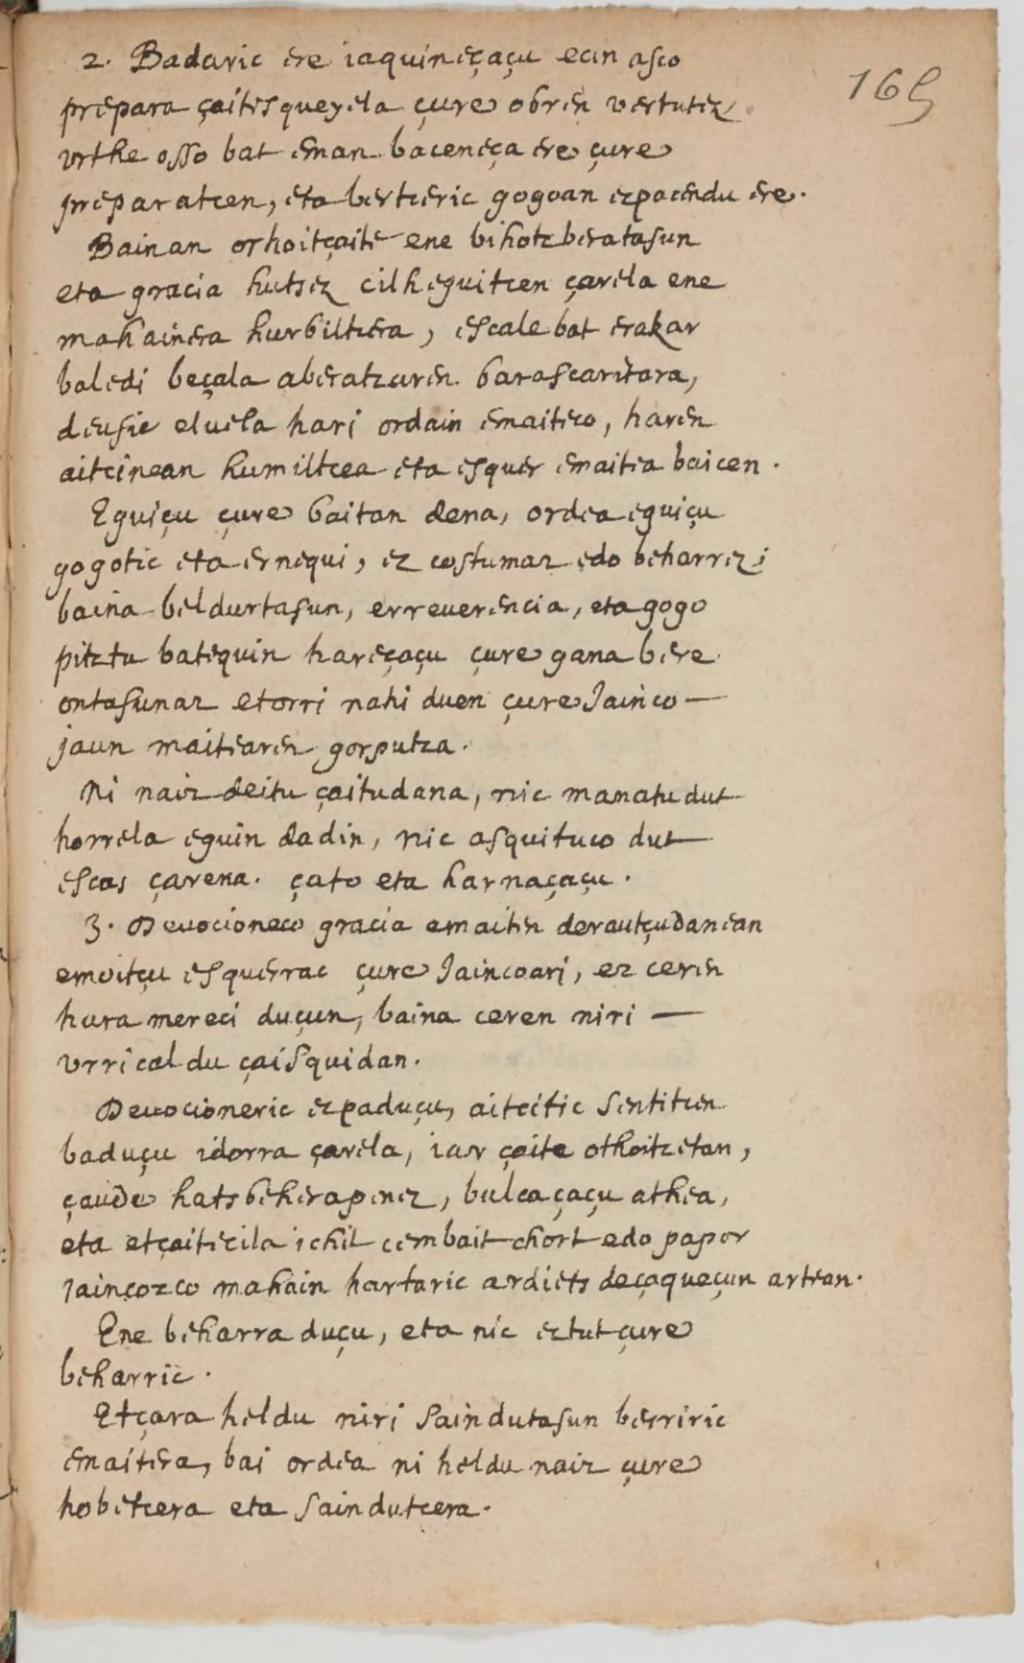 165
2. Badaric ere iaquineçaçu ecin asco
prepara çaitesqueyela çure obren vertutez
vrthe osso bat eman baceneça ere çure
preparatcen, eta bertceric gogoan ezpacendu ere.
Bainan orhoitçaite ene bihotz beratasun
eta gracia hutsez cilheguitcen çarela ene
mahainera hurbiltcera, escale bat erakar
baledi beçala aberatzaren barascaritara,
deusic eluela hari ordain emaiteco, haren
aitcinean humiltcea eta esquer emaitea baicen.
Eguiçu çure baitan dena, ordea eguiçu
gogotic eta ernequi, ez costumaz edo beharrez;
baina beldurtasun, erreuerencia, eta gogo
pitztu batequin hareçaçu çure gana bere
ontasunaz etorri nahi duen çure Jainco —
jaun maitearen gorputza.
Ni naiz deitu çaitudana, nic manatu dut
horrela eguin dadin, nic asquituco dut
escas çarena. çato eta harnaçaçu.
3. Deuocioneco gracia emaiten derautçudanean
emoitçu esquerrac çure Jaincoari, ez ceren
hura mereci duçun, baina ceren niri —
vrricaldu çaisquidan.
Deuocioneric ezpaduçu, aitcitic sentitcen
baduçu idorra çarela, iar çaite othoitzetan,
çaude hatsbeherapenez, bulca çaçu athea,
eta etçaitecila ichil cembait chort edo papor
Jaincozco mahain hartaric ardiets deçaqueçun artean.
Ene beharra duçu, eta nic eztut çure
beharric.
Etçara heldu niri saindutasun berriric
emaitera, bai ordea ni heldu naiz çure
hobetcera eta saindutcera.